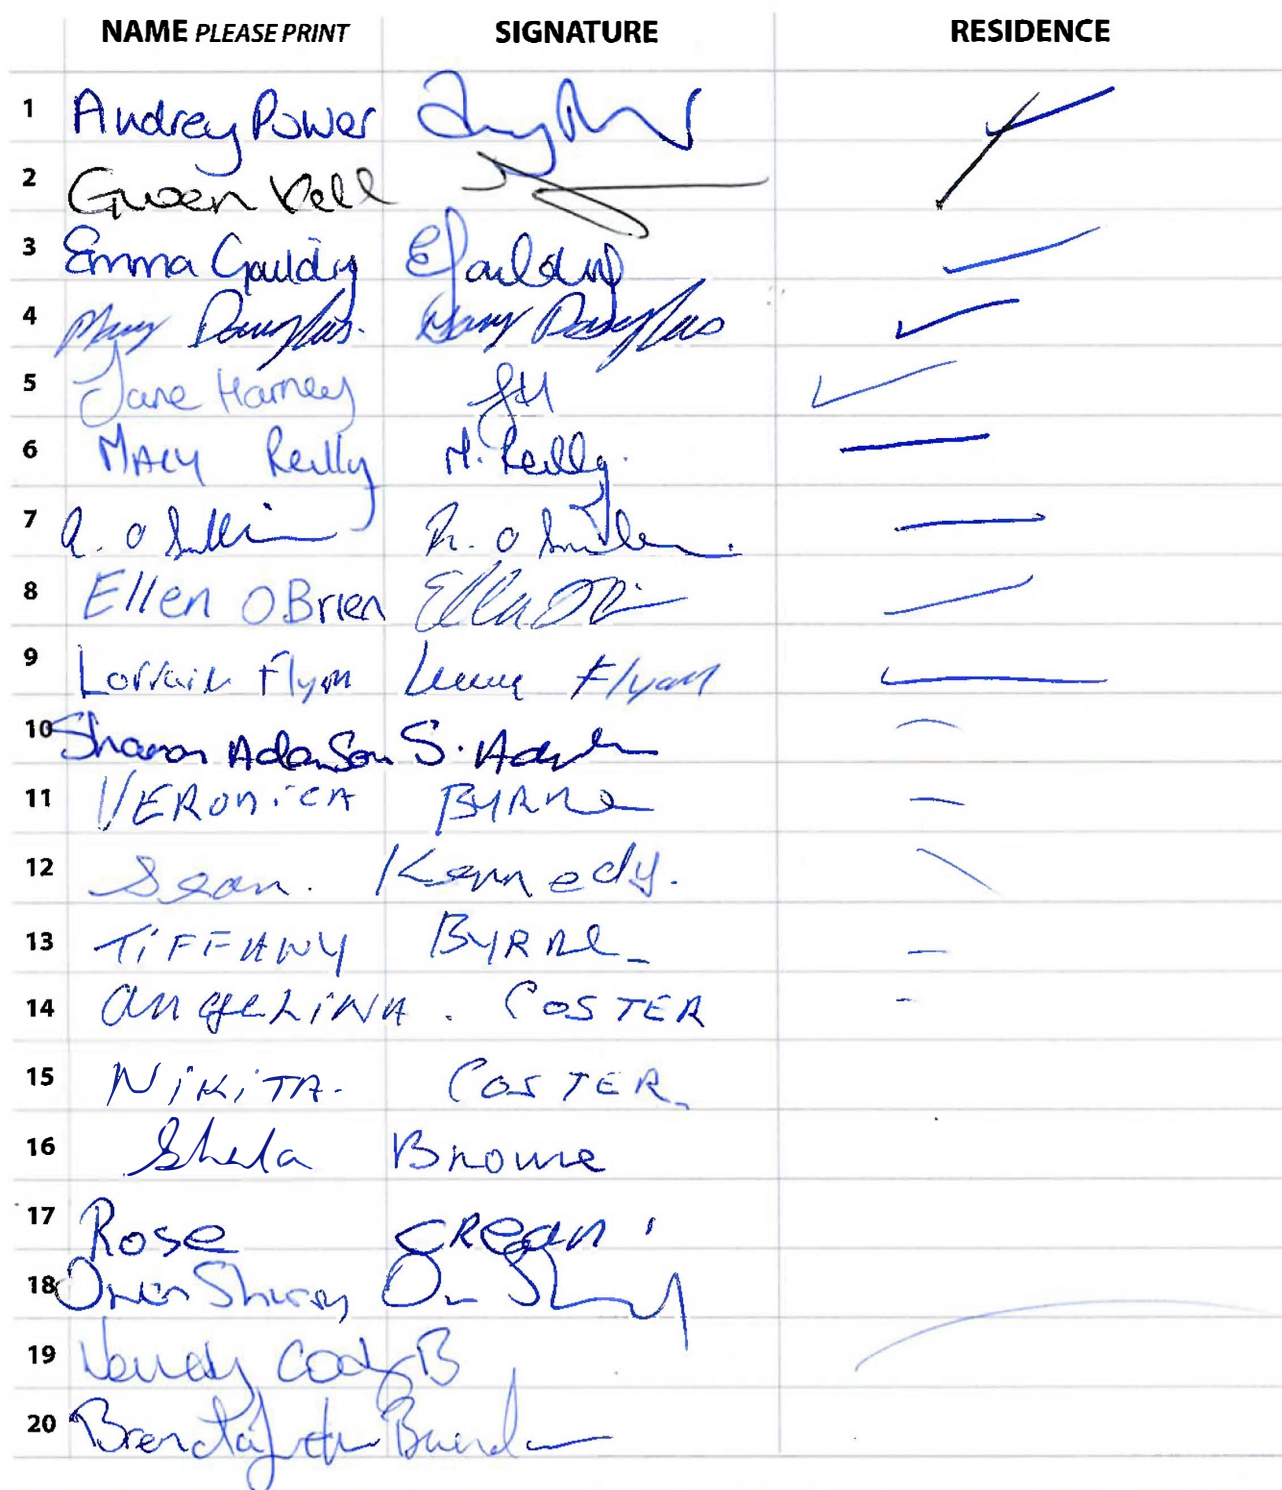 NAME PLEASE PRINT SIGNATURE RESIDENCE
1 Audrey Power
2 Gwen Kell
3 Emma Gaulding EGaulding
4 Mary Douglas. Mary Douglas
5 Jane Harney JH
6 MARY Reilly M. Reilly.
7 O Sullivan O
8 Ellen OBrien
9 Lorrain Flynn Flynn
10 Sharon Adamson S.
11 VERONICA BYRNE
12 Sean. Kennedy.
13 TiFFANY BYRNE
14 ANGELiNA. COSTER
15 NiKiTA. COSTER
16 Shela Browne
17 Rose CREGAN
18 Owen
19 Wendy Cody B
20 Brenda